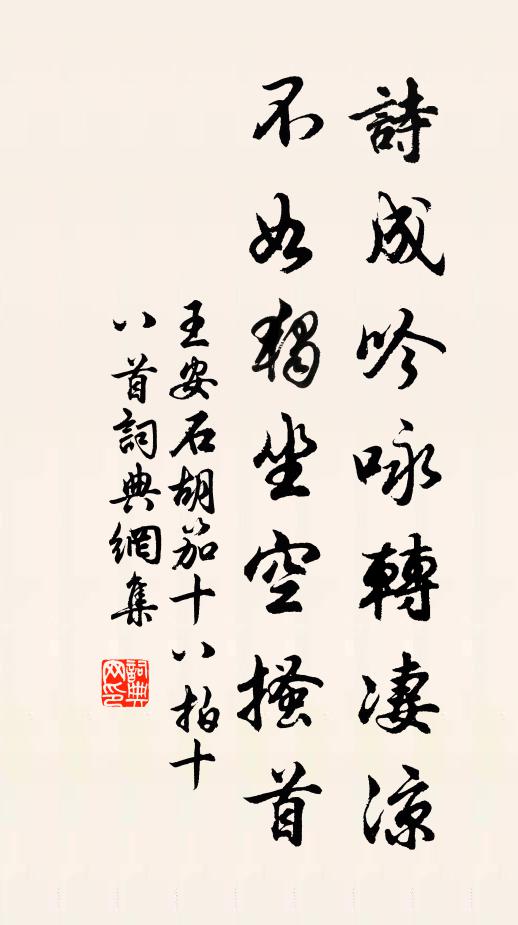 詩成吟咏轉凄涼
不如獨坐空搔首
王安石胡笳十八拍十
八首詞典網集
詞典网印